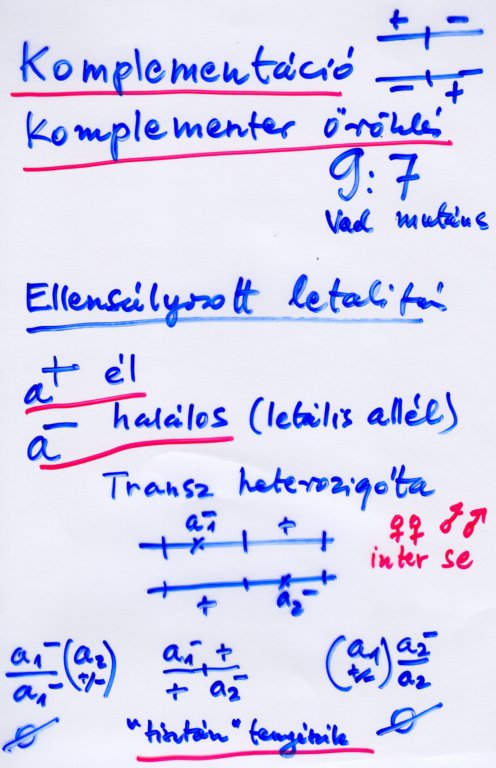 + -
Komplementáció
- +
Komplementer öröklés
9:7
Vad mutáns
Ellensúlyozott letalitás
a+ él
a- halálos (letális allél)
Transz heterozigóta
a1- +
♀♀ ♂♂
inter se
+ a2-
a1- (a2) a1- + (a1) a2-
a1- +/- + a2- +/- a2
"tisztán" tenyészik